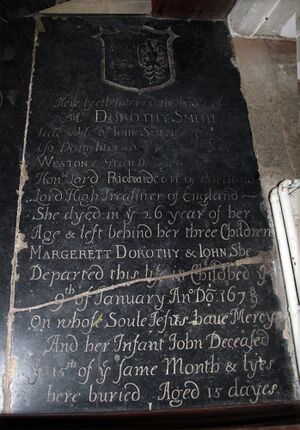 Here lyeth Interred the body of
Mrs DOROTHY SMITH
late Wife of IOHN
Daughter
WESTON &
Honble Lord Richard Earl of Portland
Lord High Treasurer of England
She dyed in ye 26 year of her
Age & left behind her three Children
MARGERETT DOROTHY & IOHN She
Departed this life in Childbed ye
9th of January Ano Do 167
On whose Soule Jesus have Mercy
And her Infant Iohn Deceased
ye 15th of ye same Month & lyes
here buried Aged 15 dayes